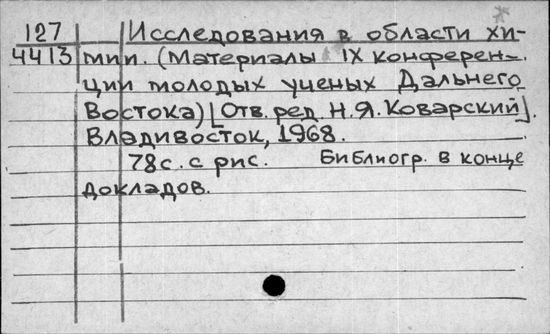 127 Исследования в области хи-
4413 мии. (Материалы IX конферен-
ции молодых ученых Дальнего
Востока) [Отв. ред. Н.Я. Коварский].
Владивосток, 1968.
78с. с рис. Библиогр. в конце
докладов.